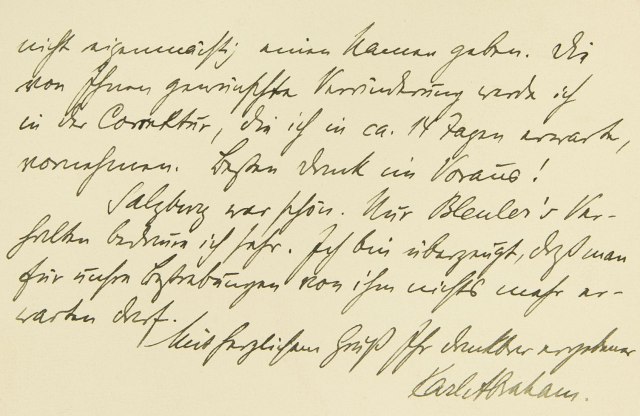 nicht eigenmächtig einen Namen geben. Die
von Ihnen gewünschte Veränderung werde ich
in der Correktur, die ich in ca. 14 Tagen erwarte,
vornehmen. Besten Dank im Voraus!
Salzburg war schön. Nur Bleuler's Ver-
halten bedaure ich sehr. Ich bin überzeugt, daß man
für unsre Bestrebungen von ihm nichts mehr er-
warten darf.
Mit herzlichem Gruß Ihr dankbar ergebener
Karl Abraham.